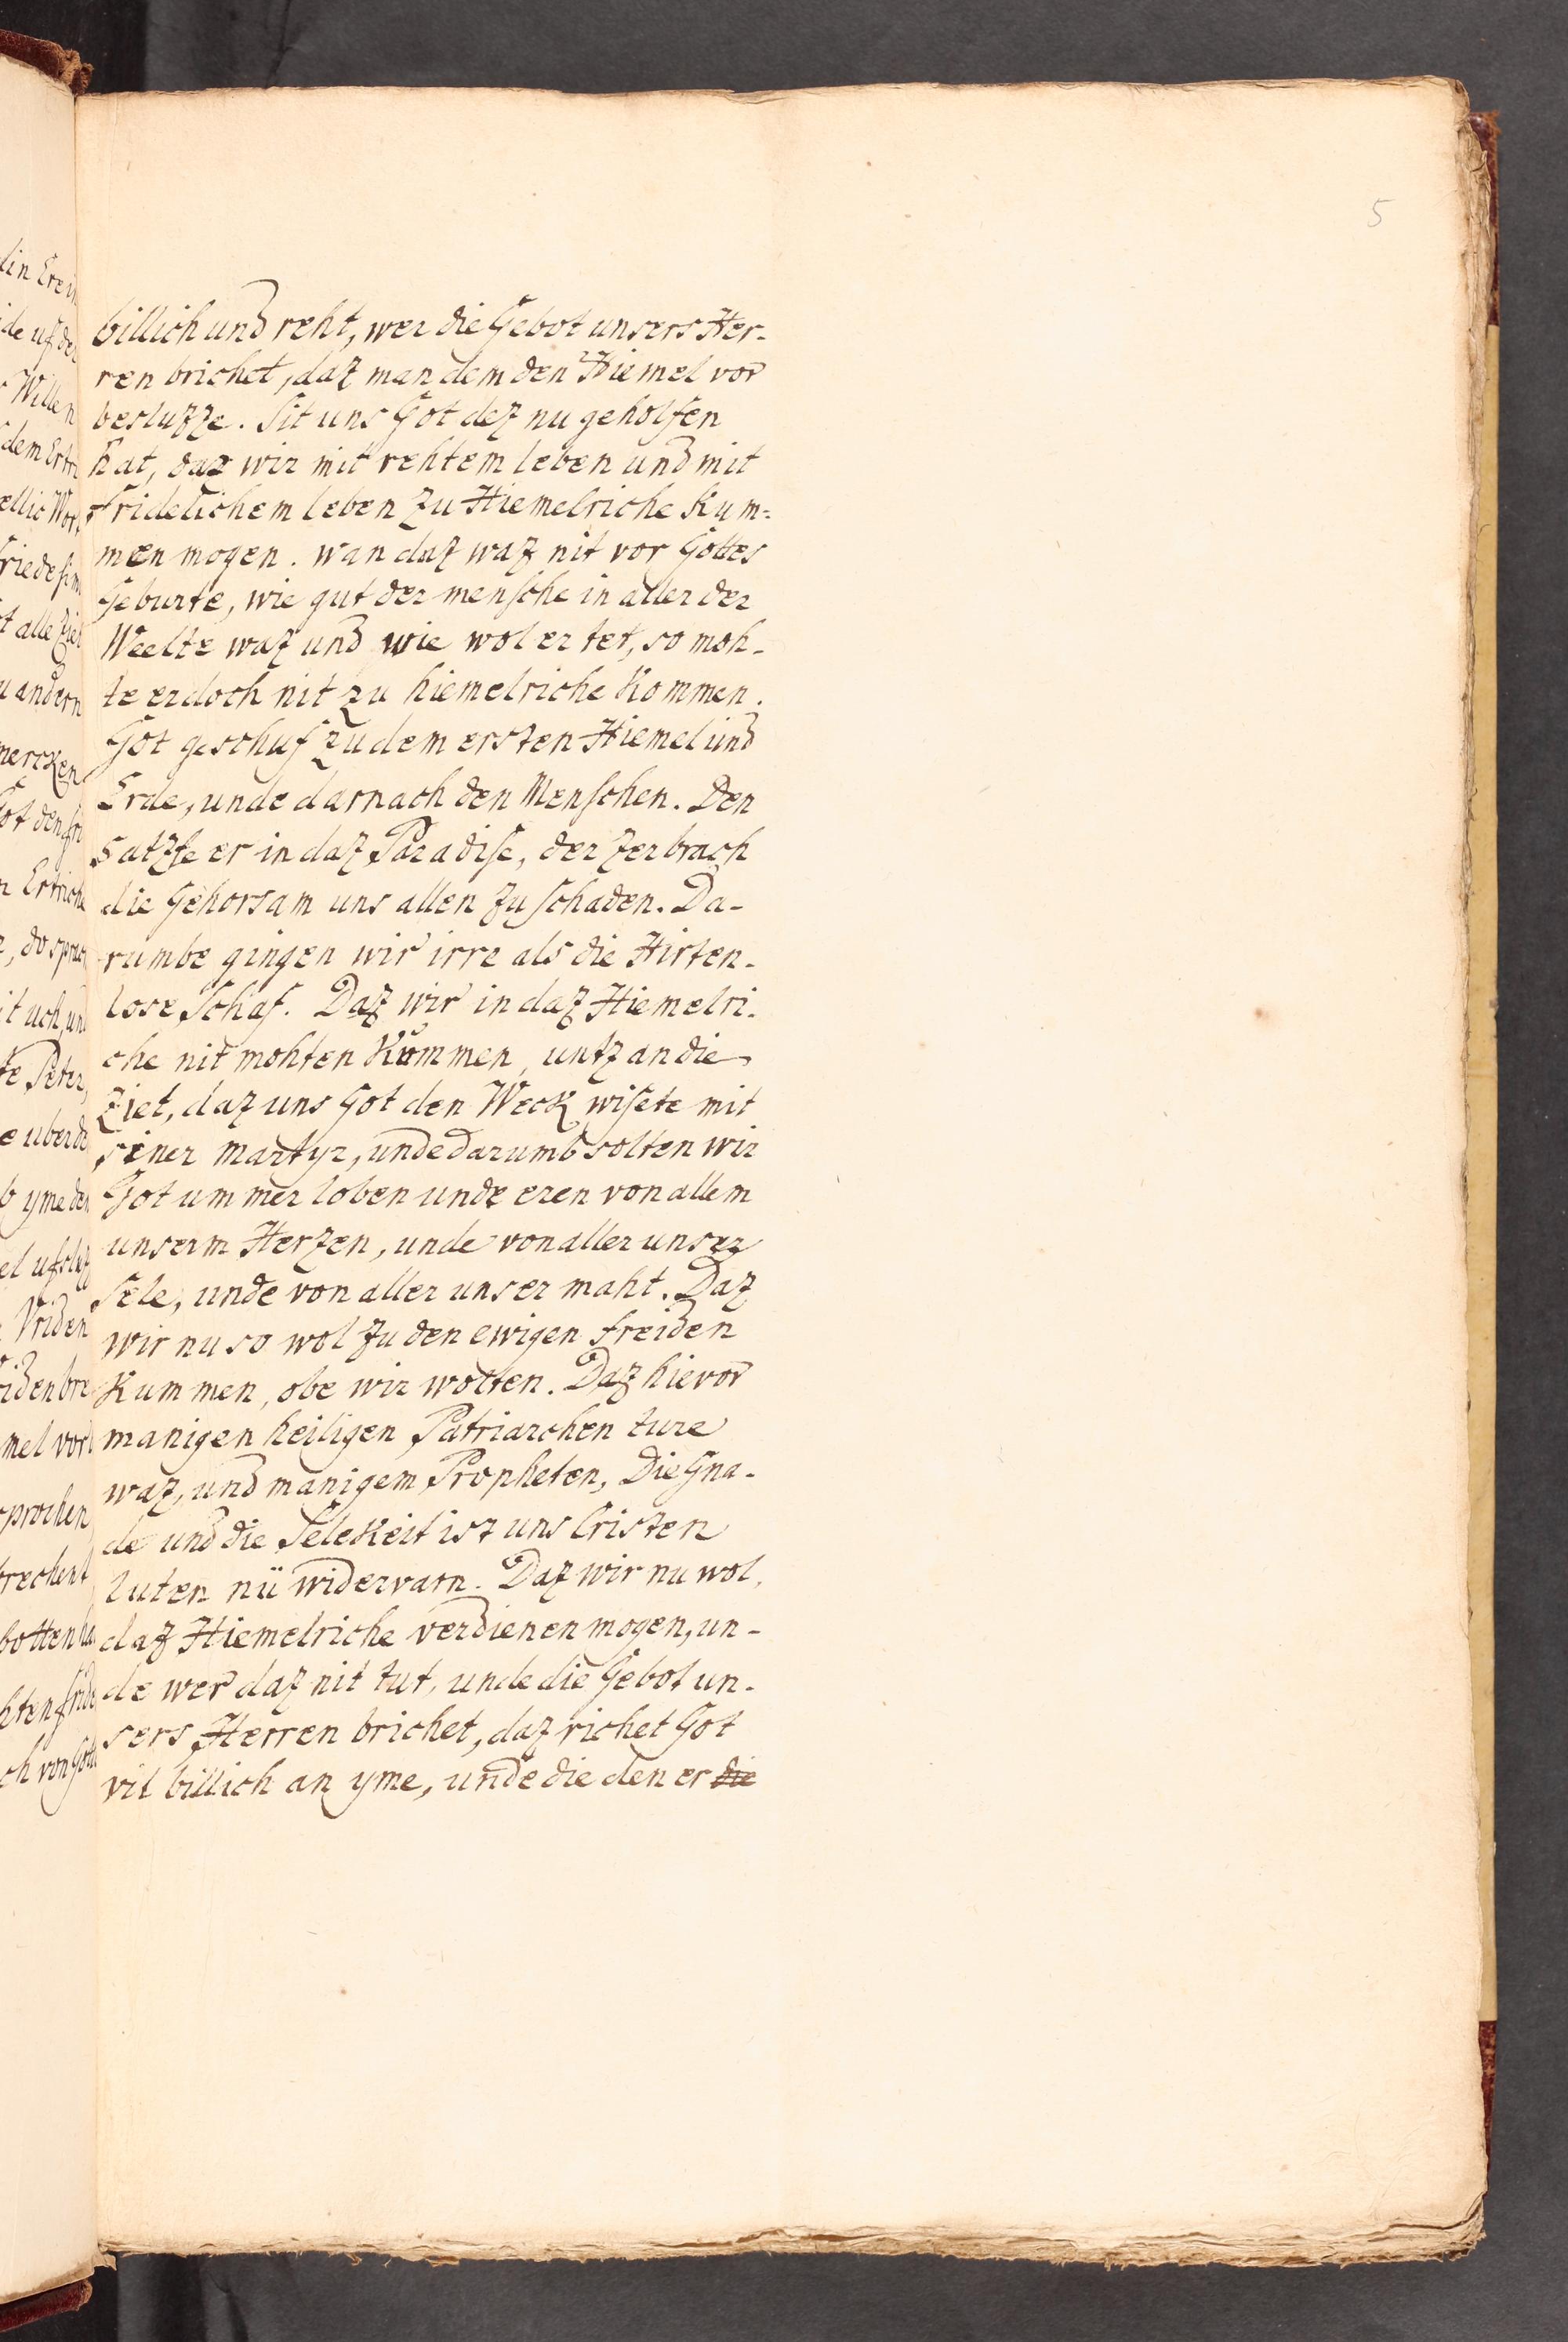 5
billich und reht, wer die Gebot unsers Her-
ren brichet, daz man dem den Hiemel vor
besluzze. Sit uns Got dez nu geholfen
hat, daz wir mit rehtem leben und mit
fridelichem leben zu Hiemelriche Kum=
men mogen. wan daz waz nit vor Gottes
Geburte, wie gut der mensche in aller der
Weelte waz und wie wol er tet, so moh-
te er doch nit zu hiemelriche Kommen.
Got geschuf zu dem ersten Hiemel und
Erde, unde darnach den Menschen. Den
satzte er in daz Paradise, der zerbrach
die Gehorsam uns allen zu schaden. Da-
rumbe gingen wir irre als die Hirten-
lose Schaf. Daz wir in daz Hiemelri-
che nit mohten Kummen, untz an die
Ziet, daz uns Got den Weck wisete mit
siner martyr, unde darumb solten wir
Got ummer loben unde eren von allem
unserm Herzen, unde von aller unser
Sele, unde von aller unser maht. Daz
wir nu so wol zu den ewigen freiden
Kummen, obe wir wolten. Daz hievor
manigen heiligen Patriarchen ture
waz, und manigem Propheten, Die Gna-
de und die SeleKeit ist uns Cristen
luten nü widervarn. Daz wir nu wol
daz Hiemelriche verdienen mogen, un-
de wer daz nit tut, unde die Gebot un-
sers Herren brichet, daz richet Got
vil billich an yme, unde die den er die